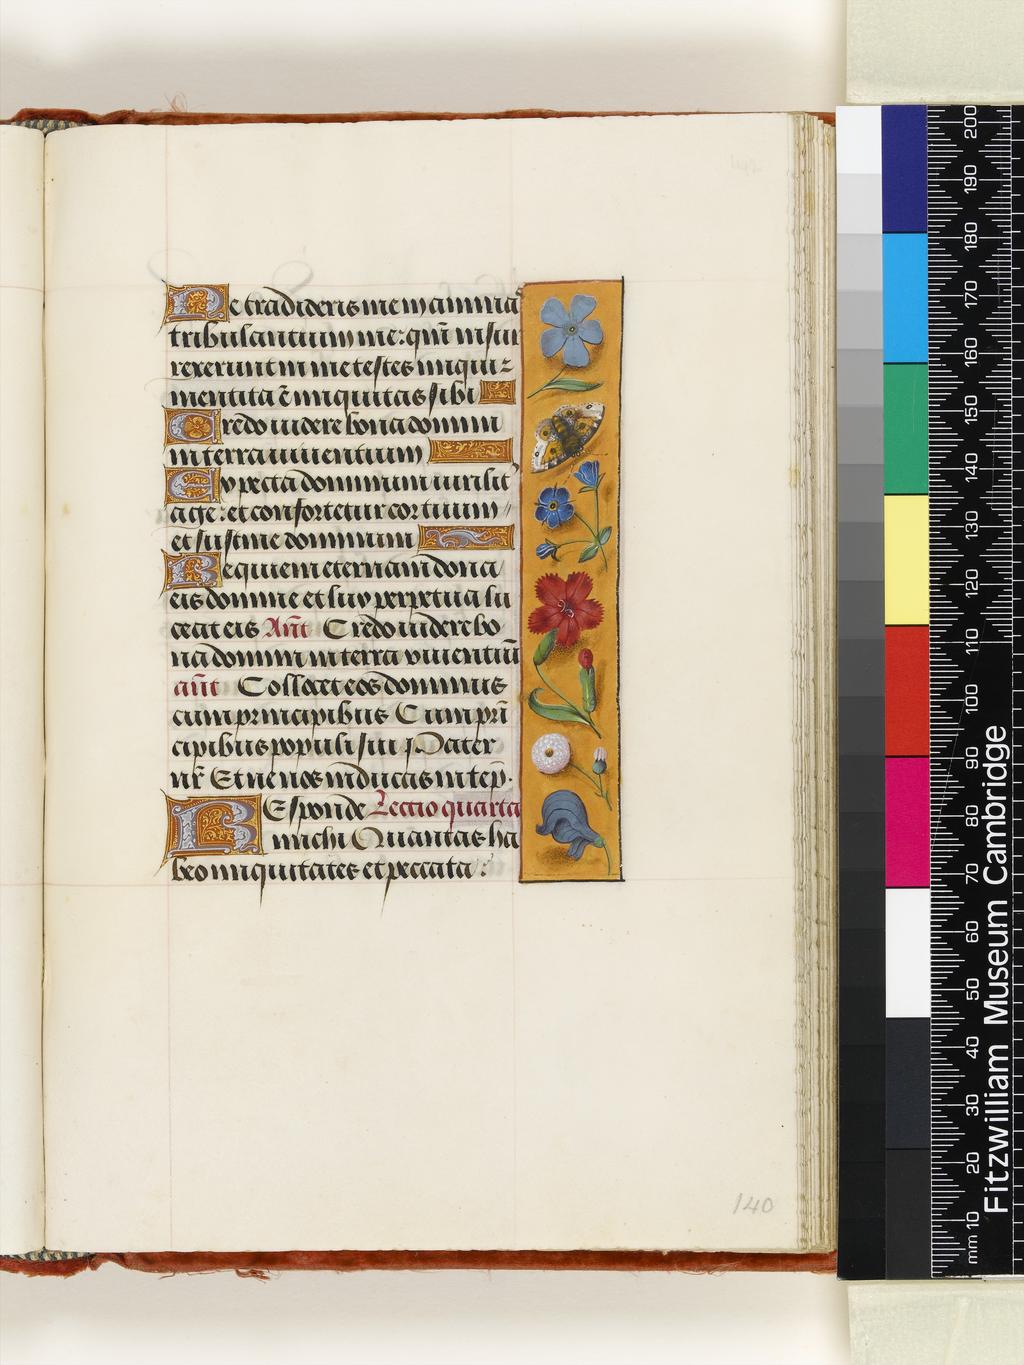 Ne tradideris me in anima
tribulantium me: qm̄ insur
rexerunt in me testes iniqui z
mentita ē iniquitas sibi
Credo videre bona domini
in terra viventium
Expecta dominum virilit᷒
age: et confortetur cor tuum
et sustine dominum
Requiem eternam dona
eis domine et lux perpetua lu
ceat eis Añt Credo videre bo
na domini in terra viventiū
añt Collocet eos dominus
cum principibus Cum prī
cipibus populi sui Pater
nr̄ Et ne nos inducas in tep̄.
Esponde Lectio quarta
R michi Quantas ha
beo iniquitates et peccata:
140
Fitzwilliam Museum Cambridge
mm 10 20 30 40 50 60 70 80 90 100 110 120 130 140 150 160 170 180 190 200